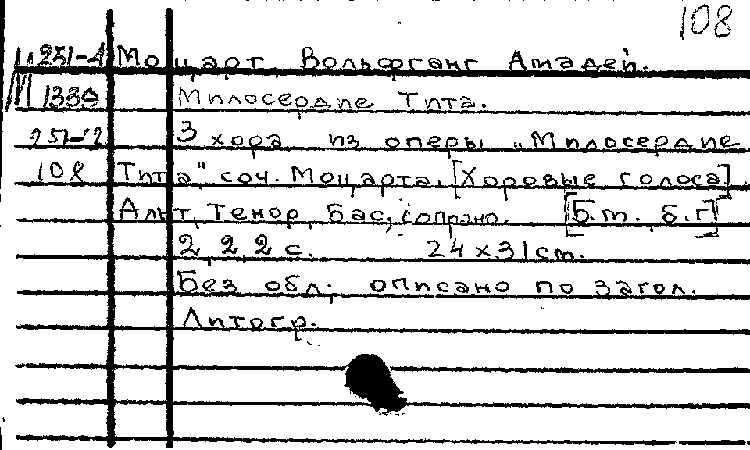 108
251-4 Моцарт Вольфганг Амадей.
1339 Милосердие Тита.
251-12 3 хора из оперы „Милосердие
108 Тита" соч. Моцарта. [Хоровые голоса]
Альт, Тенор, Бас, сопрано. [Б.м., б.г]
2, 2, 2 с. 24 x 31 cm.
Без обл., описано по загол.
Литогр.